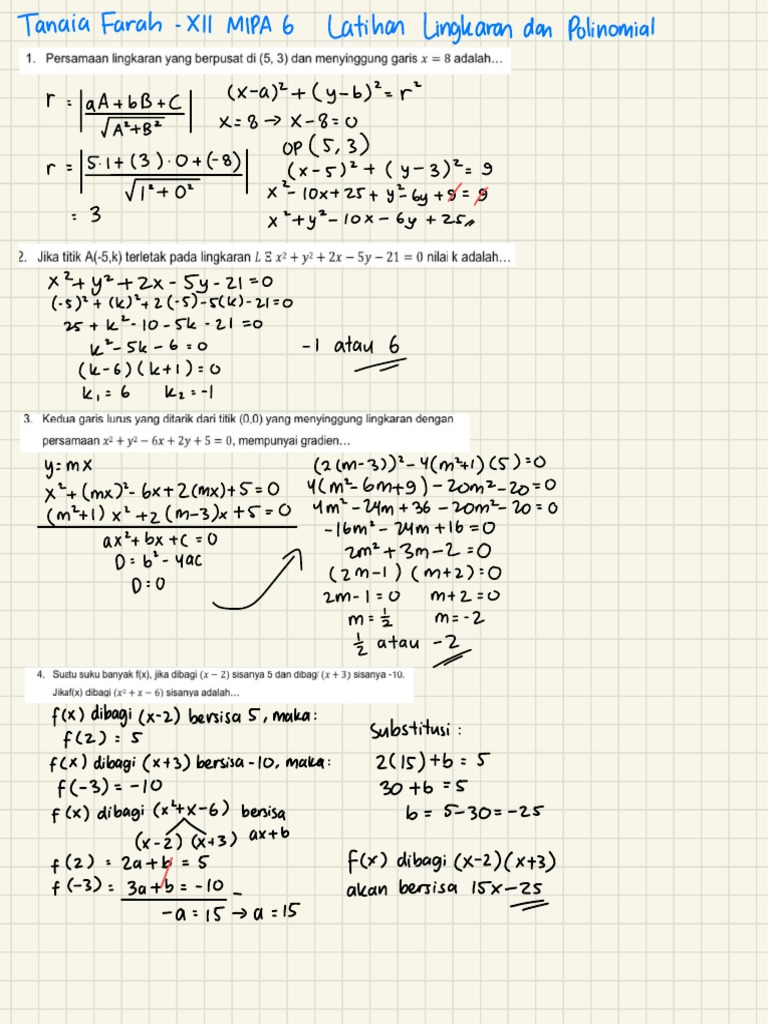 Tanaia Farah - XII MIPA 6 Latihan Lingkaran dan Polinomial
1. Persamaan lingkaran yang berpusat di (5, 3) dan menyinggung garis x = 8 adalah…
r = |aA + bB + C / √A²+B²|
(x-a)² + (y-b)² = r²
x = 8 → x - 8 = 0
OP (5, 3)
r = |5·1 + (3)·0 + (-8) / √1² + 0²|
= 3
(x-5)² + (y-3)² = 9
x² - 10x + 25 + y² - 6y + 9 = 9
x² + y² - 10x - 6y + 25 //
2. Jika titik A(-5,k) terletak pada lingkaran L Ξ x² + y² + 2x − 5y − 21 = 0 nilai k adalah…
x² + y² + 2x - 5y - 21 = 0
(-5)² + (k)² + 2(-5) - 5(k) - 21 = 0
25 + k² - 10 - 5k - 21 = 0
k² - 5k - 6 = 0
(k-6)(k+1) = 0
k₁ = 6 k₂ = -1
-1 atau 6
3. Kedua garis lurus yang ditarik dari titik (0,0) yang menyinggung lingkaran dengan
persamaan x² + y² − 6x + 2y + 5 = 0, mempunyai gradien…
y = mx
x² + (mx)² - 6x + 2(mx) + 5 = 0
(m²+1) x² + 2(m-3)x + 5 = 0
ax² + bx + c = 0
D = b² - 4ac
D = 0
(2(m-3))² - 4(m²+1)(5) = 0
4(m² - 6m + 9) - 20m² - 20 = 0
4m² - 24m + 36 - 20m² - 20 = 0
-16m² - 24m + 16 = 0
2m² + 3m - 2 = 0
(2m-1) (m+2) = 0
2m - 1 = 0 m + 2 = 0
m = ½ m = -2
½ atau -2
4. Suatu suku banyak f(x), jika dibagi (x − 2) sisanya 5 dan dibagi (x + 3) sisanya -10.
Jikaf(x) dibagi (x² + x − 6) sisanya adalah…
f(x) dibagi (x-2) bersisa 5, maka:
f(2) = 5
f(x) dibagi (x+3) bersisa -10, maka:
f(-3) = -10
f(x) dibagi (x²+x-6) bersisa
(x-2) (x+3) ax+b
f(2) = 2a + b = 5
f(-3) = 3a + b = -10 -
-a = 15 → a = 15
Substitusi :
2(15) + b = 5
30 + b = 5
b = 5 - 30 = -25
F(x) dibagi (x-2)(x+3)
akan bersisa 15x - 25